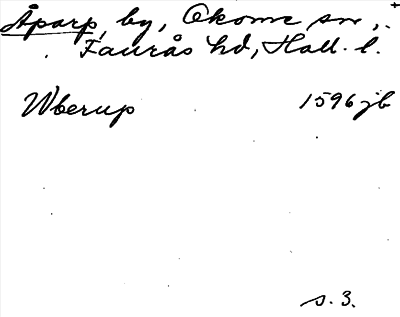 Åparp, by, Okome sn,
Faurås hd, Hall. l.
Wberup 1596 jb
s. 3.